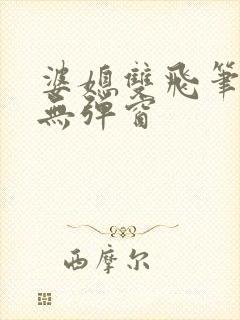 婆媳雙飛筆
無彈窗
西摩尔